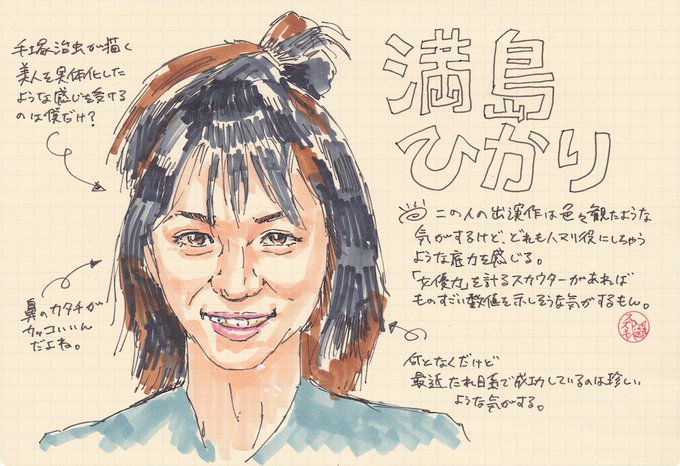 手塚治虫が描く
美人を実体化した
ような感じを受ける
のは僕だけ?
満島
ひかり
この人の出演作は色々観たような
気がするけど、どれもハマり役にしちゃう
ような底力を感じる。
「女優力」を計るスカウターがあれば
ものすごい数値を示しそうな気がするもん。
鼻のカタチが
カッコいいん
だよね。
何となくだけど
最近たれ目系で成功しているのは珍しい
ような気がする。